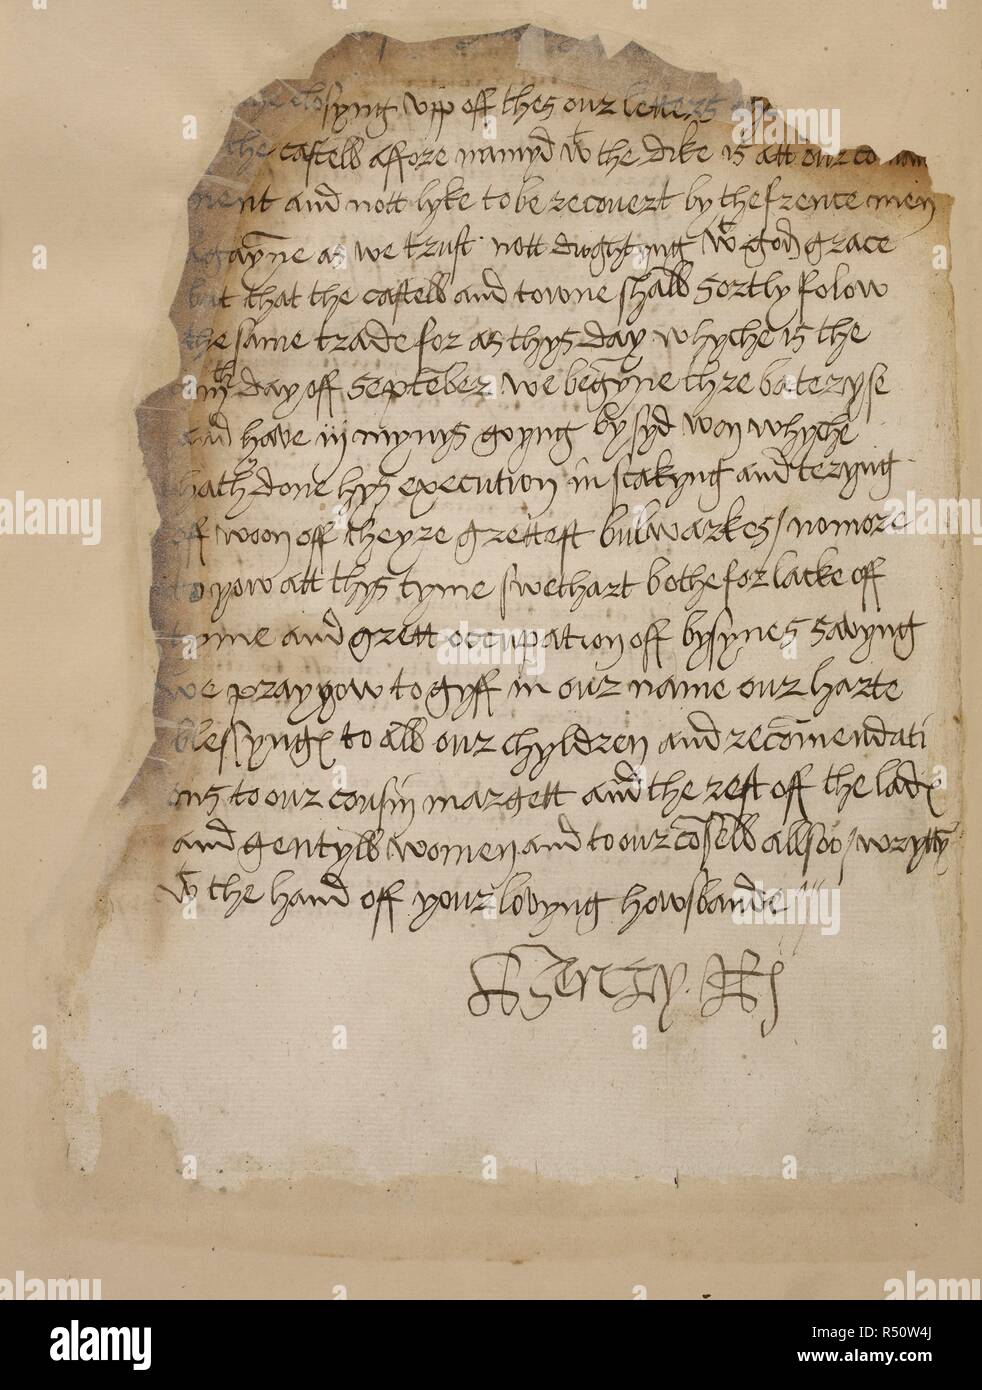 the closyng upp off thes our letters
the castell affore namyd wt the dike is att our coman
ment and nott lyke to be recovert by the frence men
agayne as we trust nott dowghtyng wt gods grace
but that the castell and towne shall shortly folow
the same trade for as thys day whyche is the
day off september we begynne thre baterys
and have iij mynys goyng by syd won whyche
hath done hys execution in scakyng and teryng
off woon off theyre grettest bulwarkes / no more
to yow att thys tyme swethart bothe for lacke off
tyme and grett occupation off bysynes savyng
we pray yow to gyff in our name our harte
blessyngs to all our chyldren and recomendati
ons to our cousin margett and the rest off the lads
and gentyll women and to our cosell allsoo / wryttyn
wt the hand off your lovyng howsbande
Henry R
alamy
Image ID: R50W4J
www.alamy.com